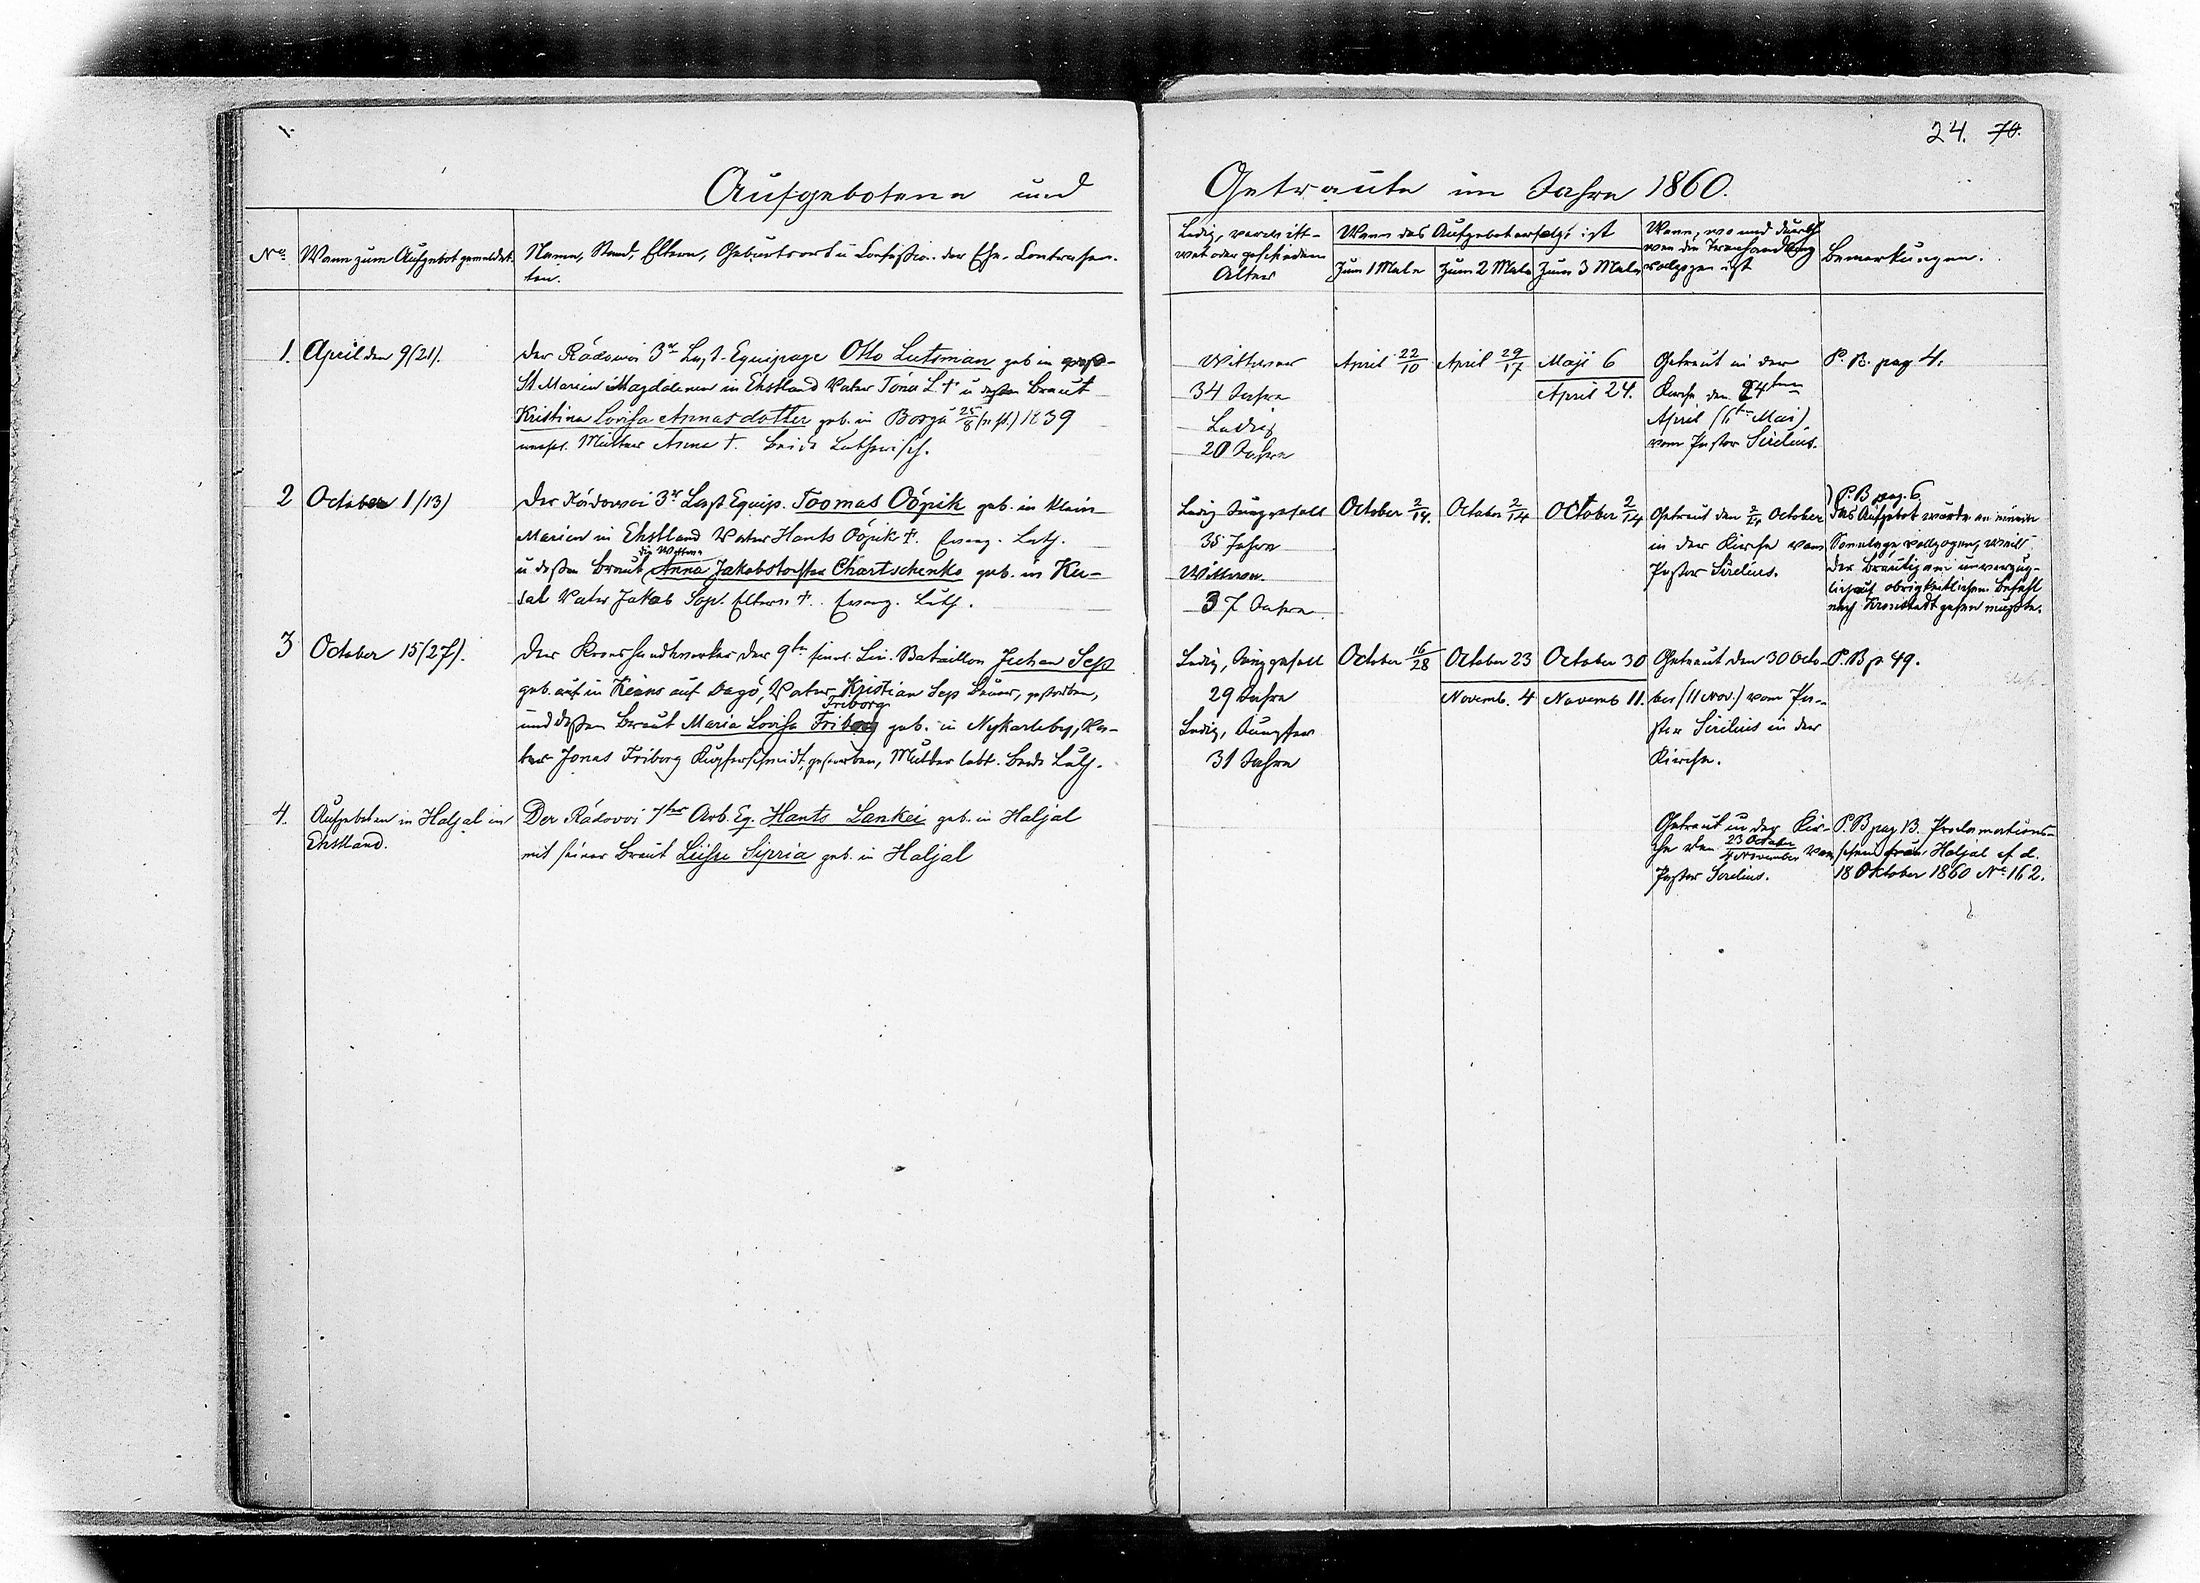 24. 70.
Aufgebotene und Getraute im Jahre 1860.
No. Wann zum Aufgebot gemeldet. Namen, Stand, Eltern, Geburtsort u Confession der Ehe-Contrahen-
ten.
Ledig, verwitt-
wet oder geschieden
Alter
Wann das Aufgebot erfolgt ist
Zum 1 Male Zum 2 Male Zum 3 Male
Wann, wo und durch
wen die Trauhandlung
vollzogen ist
Bemerkungen.
1. April den 9/21).
Der Rädowoi 3r Last-Equipage Otto Lutsman geb in
St Marien Magdalenen in Ehstland Vater Tönu L † u dessen Braut
Kristina Lovisa Annasdotter geb. in Borgå 25/8 (n st.) 1839
unehel. Mutter Anna †. beide Lutherisch.
Wittwer
34 Jahre
Ledig
20 Jahre
April 22/10 April 29/17 Maji 6
April 24.
Getraut in der
Kirche den 24ten
April (6ten Mai)
vom Pastor Sirelius.
P. B. pag 4.
2 October 1/13)
Der Rädowoi 3r Last Equip. Toomas Oöpik geb. in Klein
Marien in Ehstland Vater Hants Oöpik †. Evang. Luth.
die Wittwe
u dessen Braut Anna Jakobstochter Chartschenko geb. in Ku-
sal Vater Jakob Sep. Eltern †. Evang. Luth.
Ledig Junggesell
35 Jahre
Wittwe.
37 Jahre
October 2/14. October 2/14 October 2/14
Getraut den 2/14 October
in der Kirche vom
Pastor Sirelius.
P. B pag. 6
Das Aufgebot wurde an einem
Sonntage vollzogen, weil
der Bräutigam unverzüg-
lich auf obrigkeitlichen Befehl
nach Kronstadt gehen musste.
3 October 15/27).
Der Kronshandwerker der 9ten finnl. Lin. Bataillon Juhan Sep
geb. auf in Keins auf Dagö, Vater Kristian Sep Bauer, gestorben,
Friborg
und dessen Braut Maria Lovisa Friborg geb. in Nykarleby, Va-
ter Jonas Friborg Kupferschmidt, gestorben, Mutter lebt. Beide Luth.
Ledig, Junggesell
29 Jahre
Ledig, Jungfer
31 Jahre
October 16/28 October 23 October 30
Novemb. 4 Novemb 11.
Getraut den 30 Octo-
ber (11 Nov.) vom Pa-
stor Sirelius in der
Kirche.
P. B p. 49.
4. Aufgeboten in Haljal in
Ehstland.
Der Rädovoi 7ter Arb. Eq. Hants Lankei geb. in Haljal
mit seiner Braut Luise Sipria geb. in Haljal
Getraut in der Kir-
che den 23 October/4 November vom
Pastor Sirelius.
P. B pag 13. Proclamations-
schein Haljal d. d.
18 Oktober 1860 No 162.